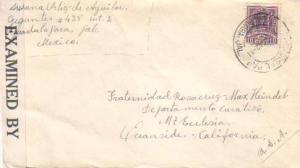 Susana Ortiz de Aguilar.
Gigantes #435 int. 2
Guadalajara, Jal.
Mexico.
EXAMINED BY
Fraternidad Rosacruz - Max Heindel
Departamento curativo.
Mt Ecclesian
Oceanside - California.
U. S. A.